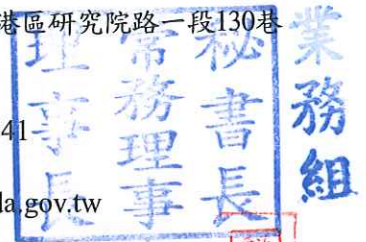 港區研究院路一段130巷
41
da.gov.tw
理事長
常務理事
秘書長
業務組